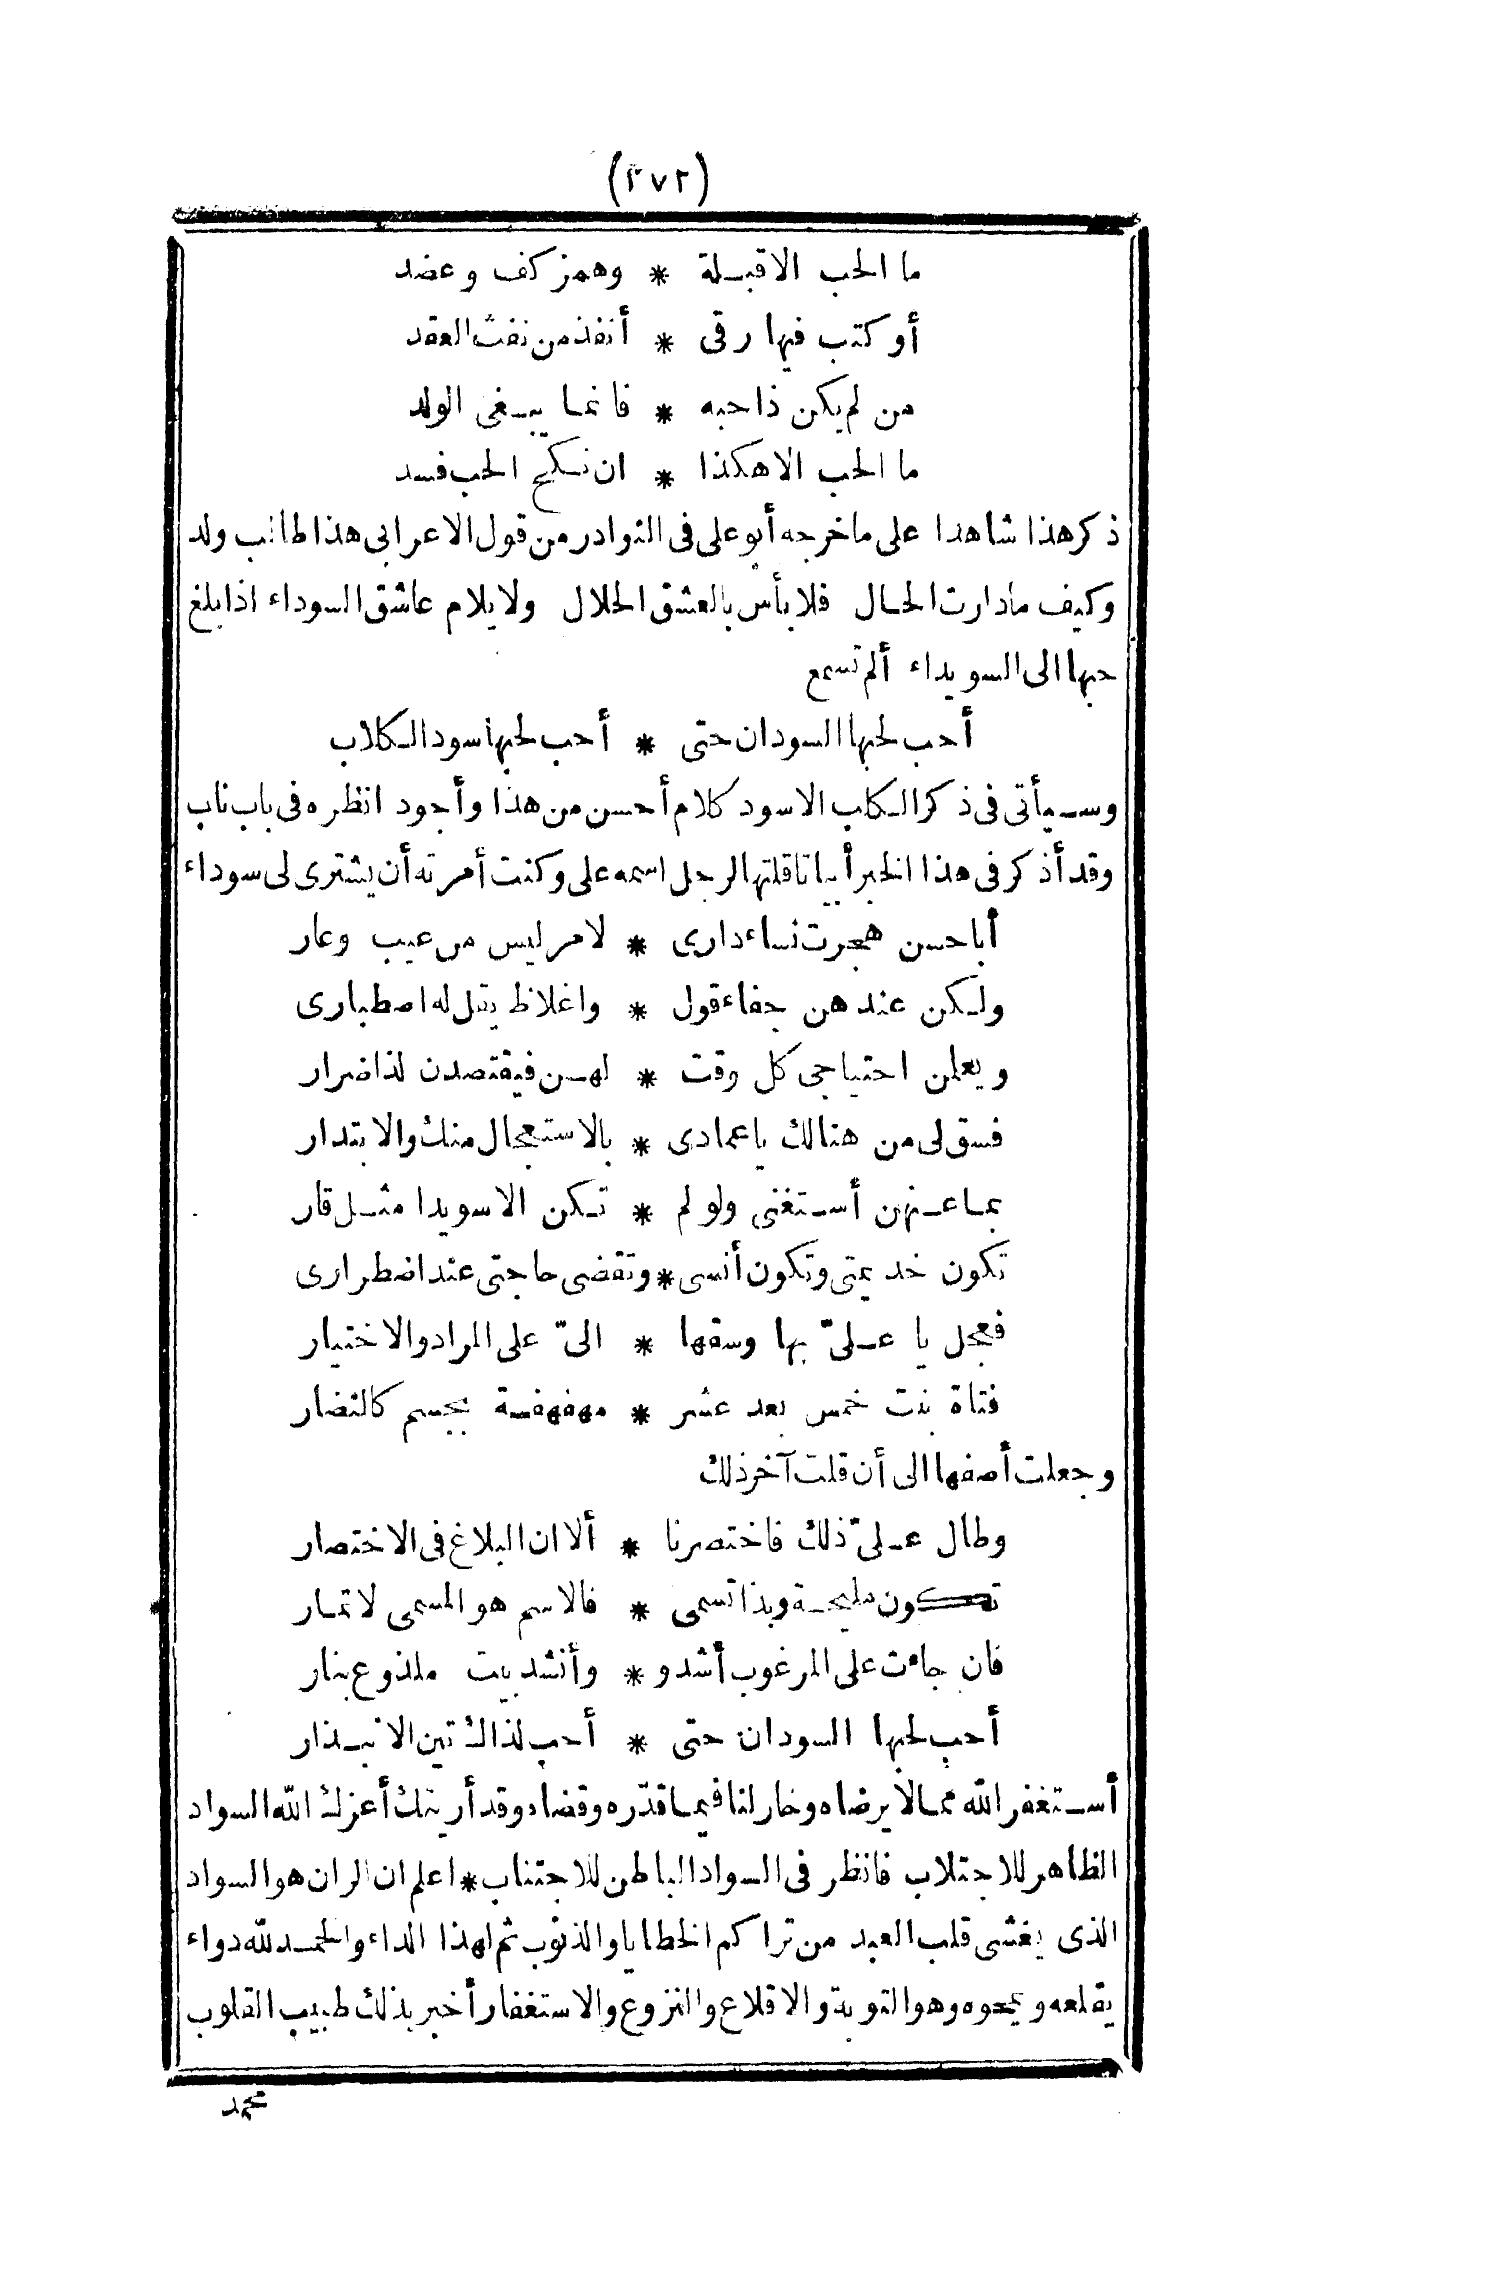 (٢٧٢)
ما الحب الا قبلة * وهمز كف وعضد
أو كتب فيها رقى * أنفذ من نفث العقد
من لم يكن ذا حبه * فانما يبغى الولد
ما الحب الا هكذا * ان نكح الحب فسد
ذكر هذا شاهدا على ما خرجه أبو على فى النوادر من قول الاعرابى هذا طالب ولد
وكيف ما دارت الحال فلا بأس بالعشق الحلال ولا يلام عاشق السوداء اذا بلغ
حبها الى السويداء ألم تسمع
أحب لحبها السودان حتى * أحب لحبها سود الكلاب
وسيأتى فى ذكر الكلب الاسود كلام أحسن من هذا وأجود انظره فى باب ناب
وقد أذكر فى هذا الخبر أبياتا قلتها لرجل اسمه على وكنت أمرته أن يشترى لى سوداء
أبا حسن هجرت نساء دارى * لامر ليس من عيب وعار
ولكن عندهن جفاء قول * واغلاظ يقل له اصطبارى
ويعلمن احتياجى كل وقت * لهن فيقتصدن لذا ضرار
فسق لى من هنالك يا عمادى * بالاستعجال منك والابتدار
بما عنهن أستغنى ولو لم * تكن الا سويدا مثل قار
تكون خديمتى وتكون أنسى * وتقضى حاجتى عند اضطرارى
فعجل يا علىّ بها وسقها * الىّ على المراد والاختيار
فتاة بنت خمس بعد عشر * مهفهفة بجسم كالنضار
وجعلت أصفها الى أن قلت آخر ذلك
وطال علىّ ذلك فاختصرنا * ألا ان البلاغ فى الاختصار
تكون مليحة وبذا تسمى * فالاسم هو المسمى لا تمار
فان جاءت على المرغوب أشدو * وأنشد بيت ملذوع بنار
أحب لحبها السودان حتى * أحب لذاك تين الانبذار
أستغفر الله مما لا يرضاه وخار لنا فيما قدّره وقضاه وقد أريتك أعزك الله السواد
الظاهر للاجتلاب فانظر فى السواد الباطن للاجتناب * اعلم ان الران هو السواد
الذى يغشى قلب العبد من تراكم الخطايا والذنوب ثم لهذا الداء والحمد لله دواء
يقلعه ويمحوه وهو التوبة والاقلاع والنزوع والاستغفار أخبر بذلك طبيب القلوب
محمد